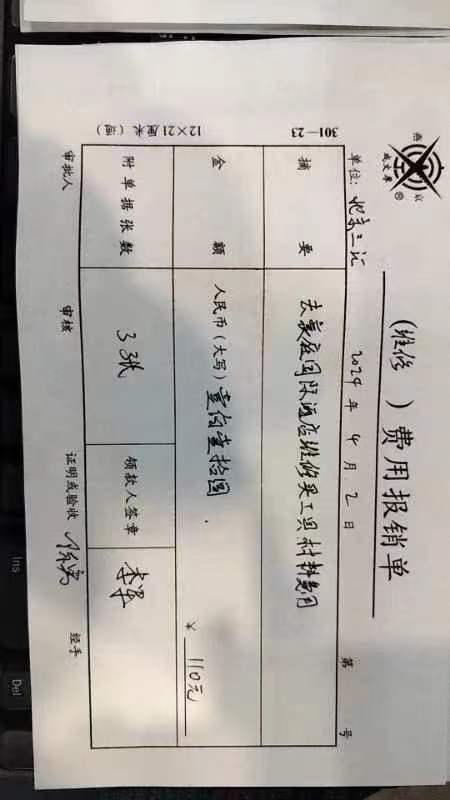 燕 京
成文厚
®
(维修 ) 费用报销单
2024 年 4 月 2 日
第 号
单位:
301—23
12×21厘米(函)
摘 要
去豪庭国际酒店维修买工具材料费用
金 额
人民币(大写) 壹佰壹拾圆.
¥ 110元
附单据张数
3张
领款人签章
审批人 审核 证明或验收 经手
Ins
Del